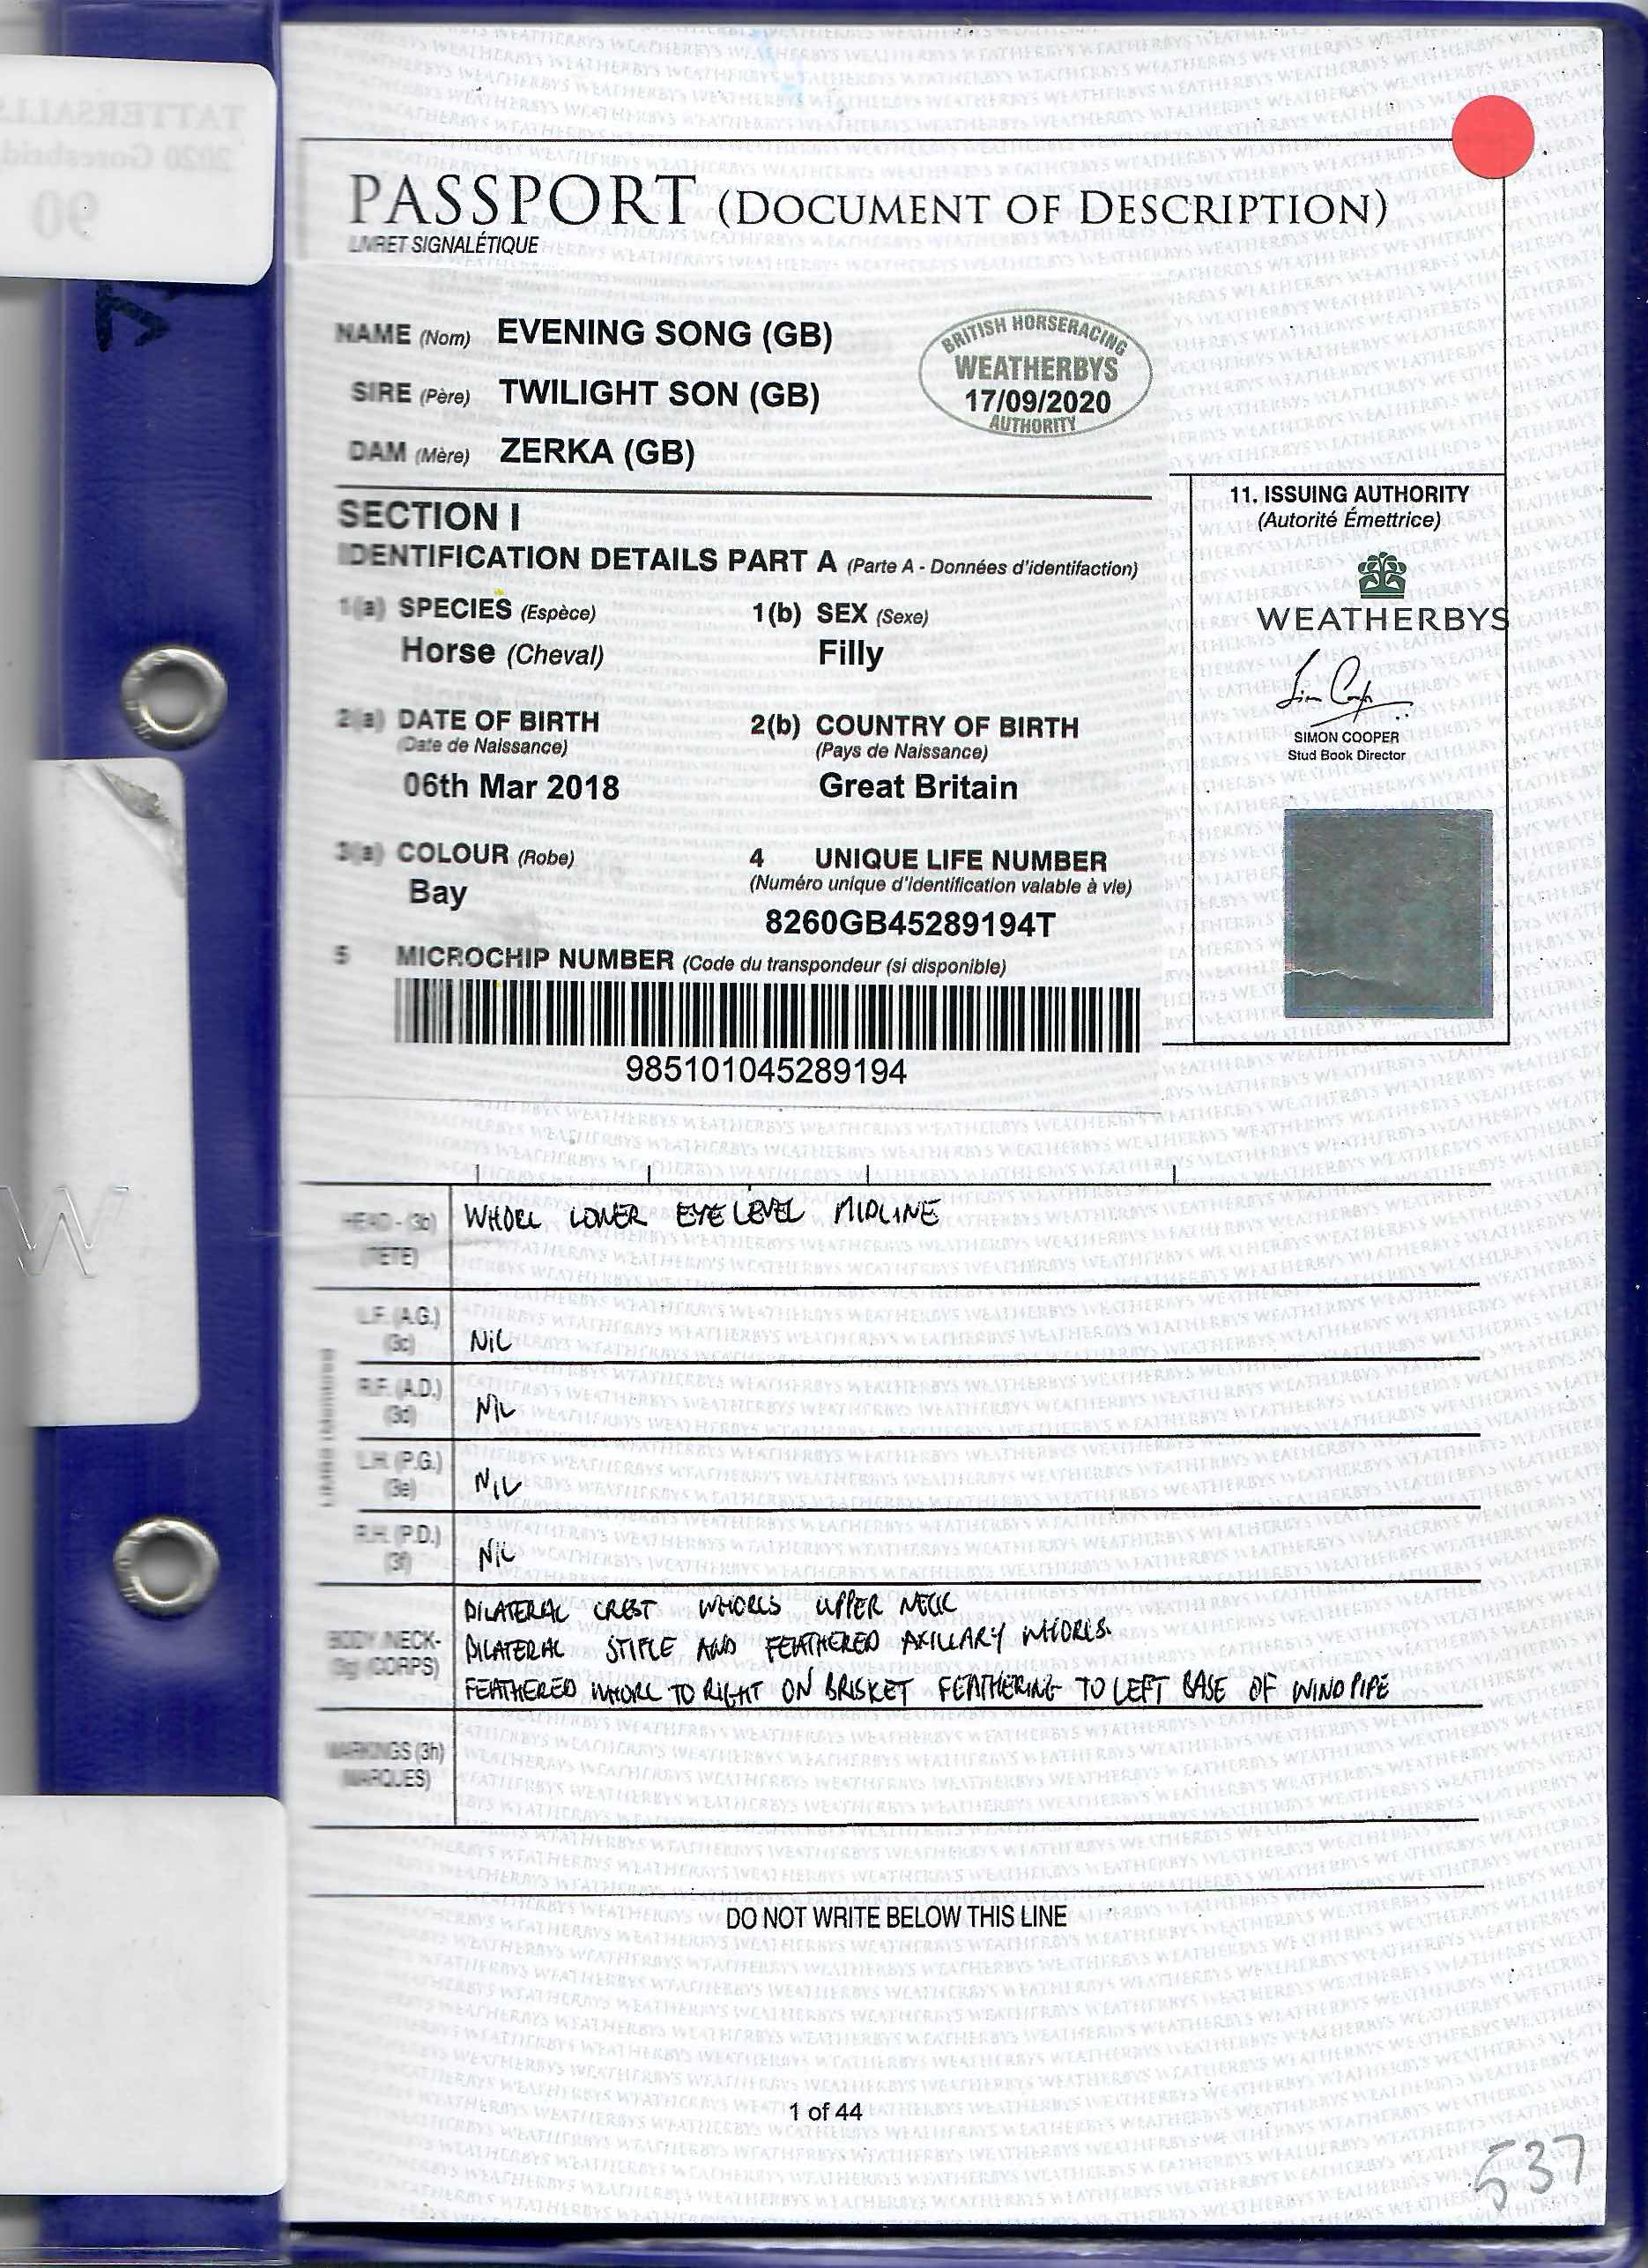 TATTERSALLS
2020 Goresbrid
90
PASSPORT (DOCUMENT OF DESCRIPTION)
LIVRET SIGNALÉTIQUE
NAME (Nom) EVENING SONG (GB)
SIRE (Père) TWILIGHT SON (GB)
DAM (Mère) ZERKA (GB)
BRITISH HORSERACING
WEATHERBYS
17/09/2020
AUTHORITY
SECTION I
IDENTIFICATION DETAILS PART A (Parte A - Données d'identifaction)
1(a) SPECIES (Espèce) 1(b) SEX (Sexe)
Horse (Cheval) Filly
2(a) DATE OF BIRTH 2(b) COUNTRY OF BIRTH
(Date de Naissance) (Pays de Naissance)
06th Mar 2018 Great Britain
3(a) COLOUR (Robe) 4 UNIQUE LIFE NUMBER
Bay (Numéro unique d'Identification valable à vie)
8260GB45289194T
5 MICROCHIP NUMBER (Code du transpondeur (si disponible)
985101045289194
11. ISSUING AUTHORITY
(Autorité Émettrice)
WEATHERBYS
SIMON COOPER
Stud Book Director
HEAD - (3b) WHORL LOWER EYE LEVEL MIDLINE
(TÊTE)
L.F. (A.G.)
(3c) NIL
R.F. (A.D.)
(3d) NIL
L.H. (P.G.)
(3e) NIL
R.H. (P.D.)
(3f) NIL
BILATERAL CREST WHORLS UPPER NECK
BODY/NECK- BILATERAL STIFLE AND FEATHERED AXILLARY WHORLS.
3g (CORPS)
FEATHERED WHORL TO RIGHT ON BRISKET FEATHERING TO LEFT BASE OF WINDPIPE
MARKINGS (3h)
(MARQUES)
DO NOT WRITE BELOW THIS LINE
1 of 44
537